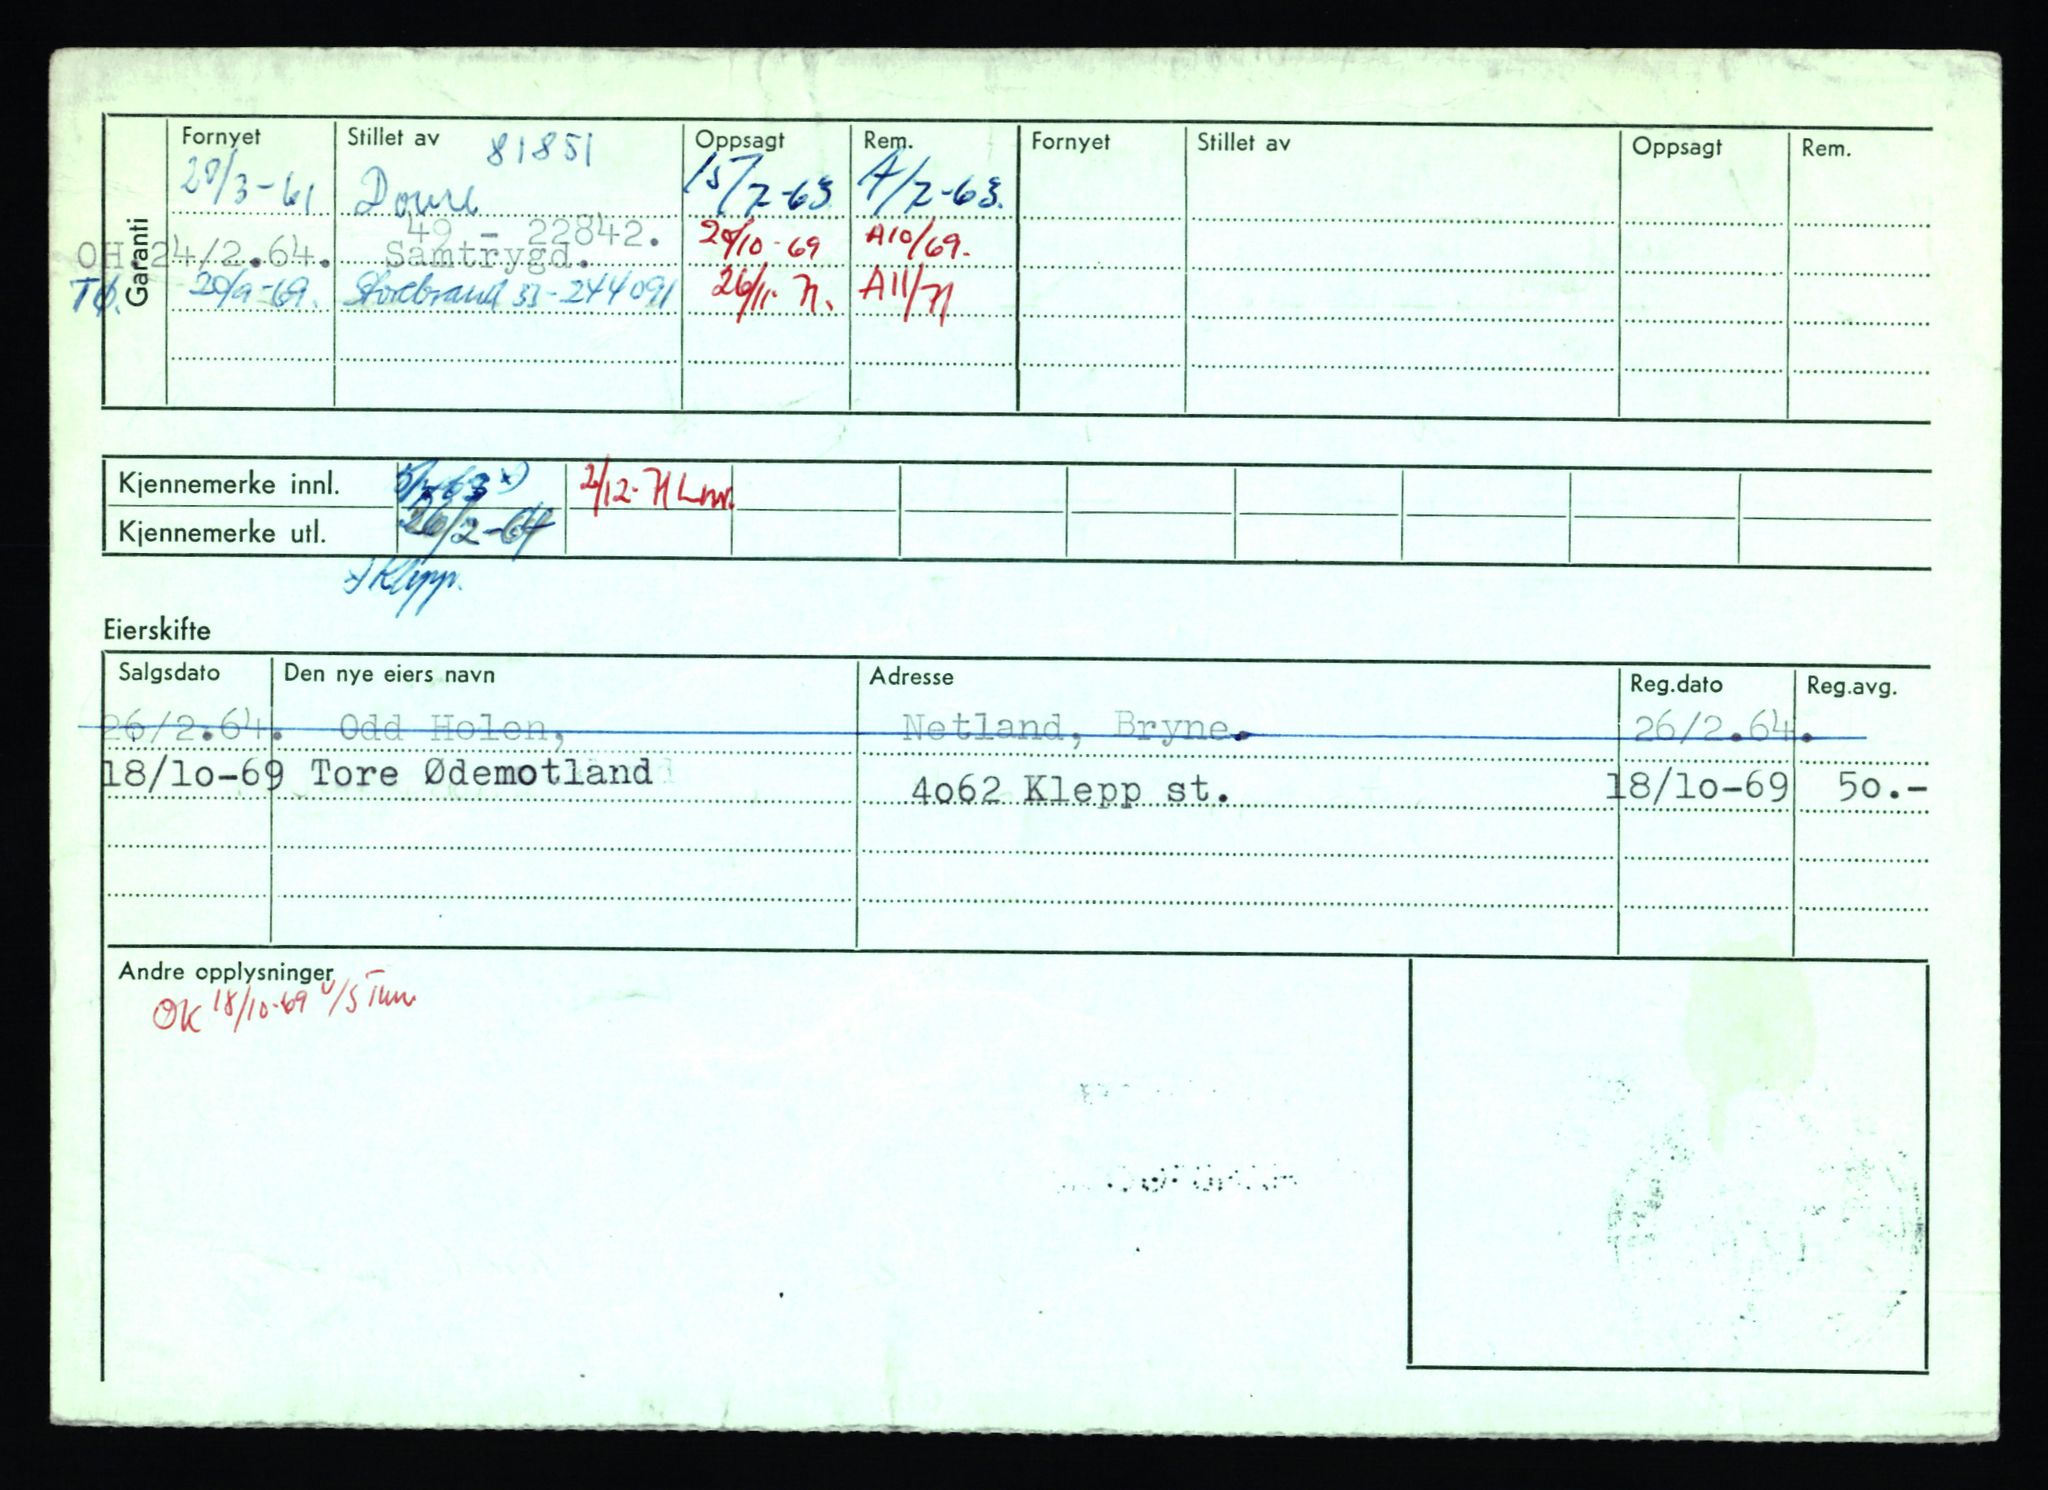 Garanti
Fornyet Stillet av 81851 Oppsagt Rem. Fornyet Stillet av Oppsagt Rem.
28/3-61 15/7-63 A/7-63.
49 - 22842.
OH. 24/2.64. Samtrygd. 29/10-69 A10/69.
TØ. 20/9-69. Storebrand 33-244091 26/11-71. A11/71
Kjennemerke innl. 2/12-71
Kjennemerke utl. 26/2-64
x) Klepp.
Eierskifte
Salgsdato Den nye eiers navn Adresse Reg.dato Reg.avg.
26/2.64. Odd Holen, Netland, Bryne. 26/2.64.
18/1o-69 Tore Ødemotland 4o62 Klepp st. 18/1o-69 5o.-
Andre opplysninger
OK 18/10-69